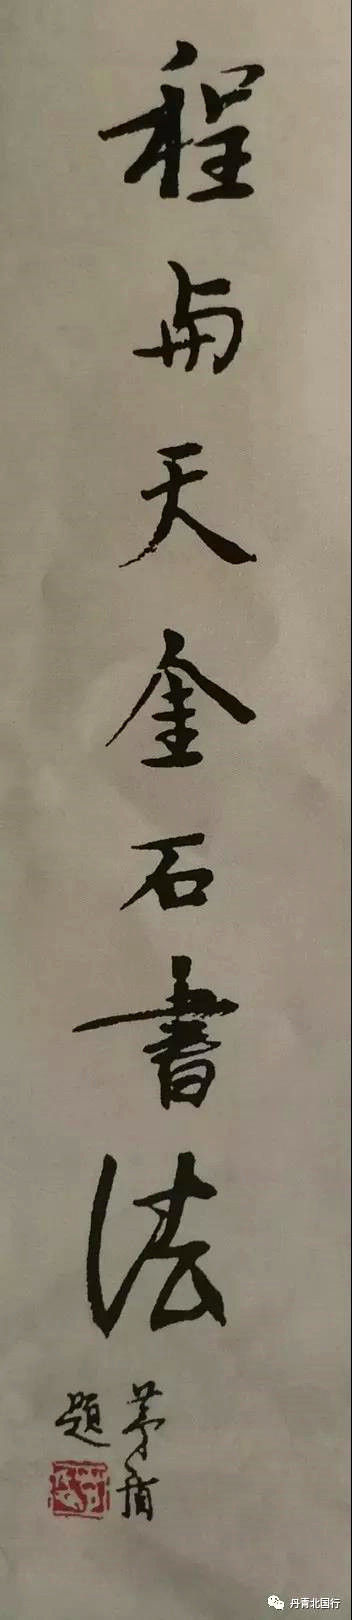 程与天金石書法
茅盾
題
丹青北国行